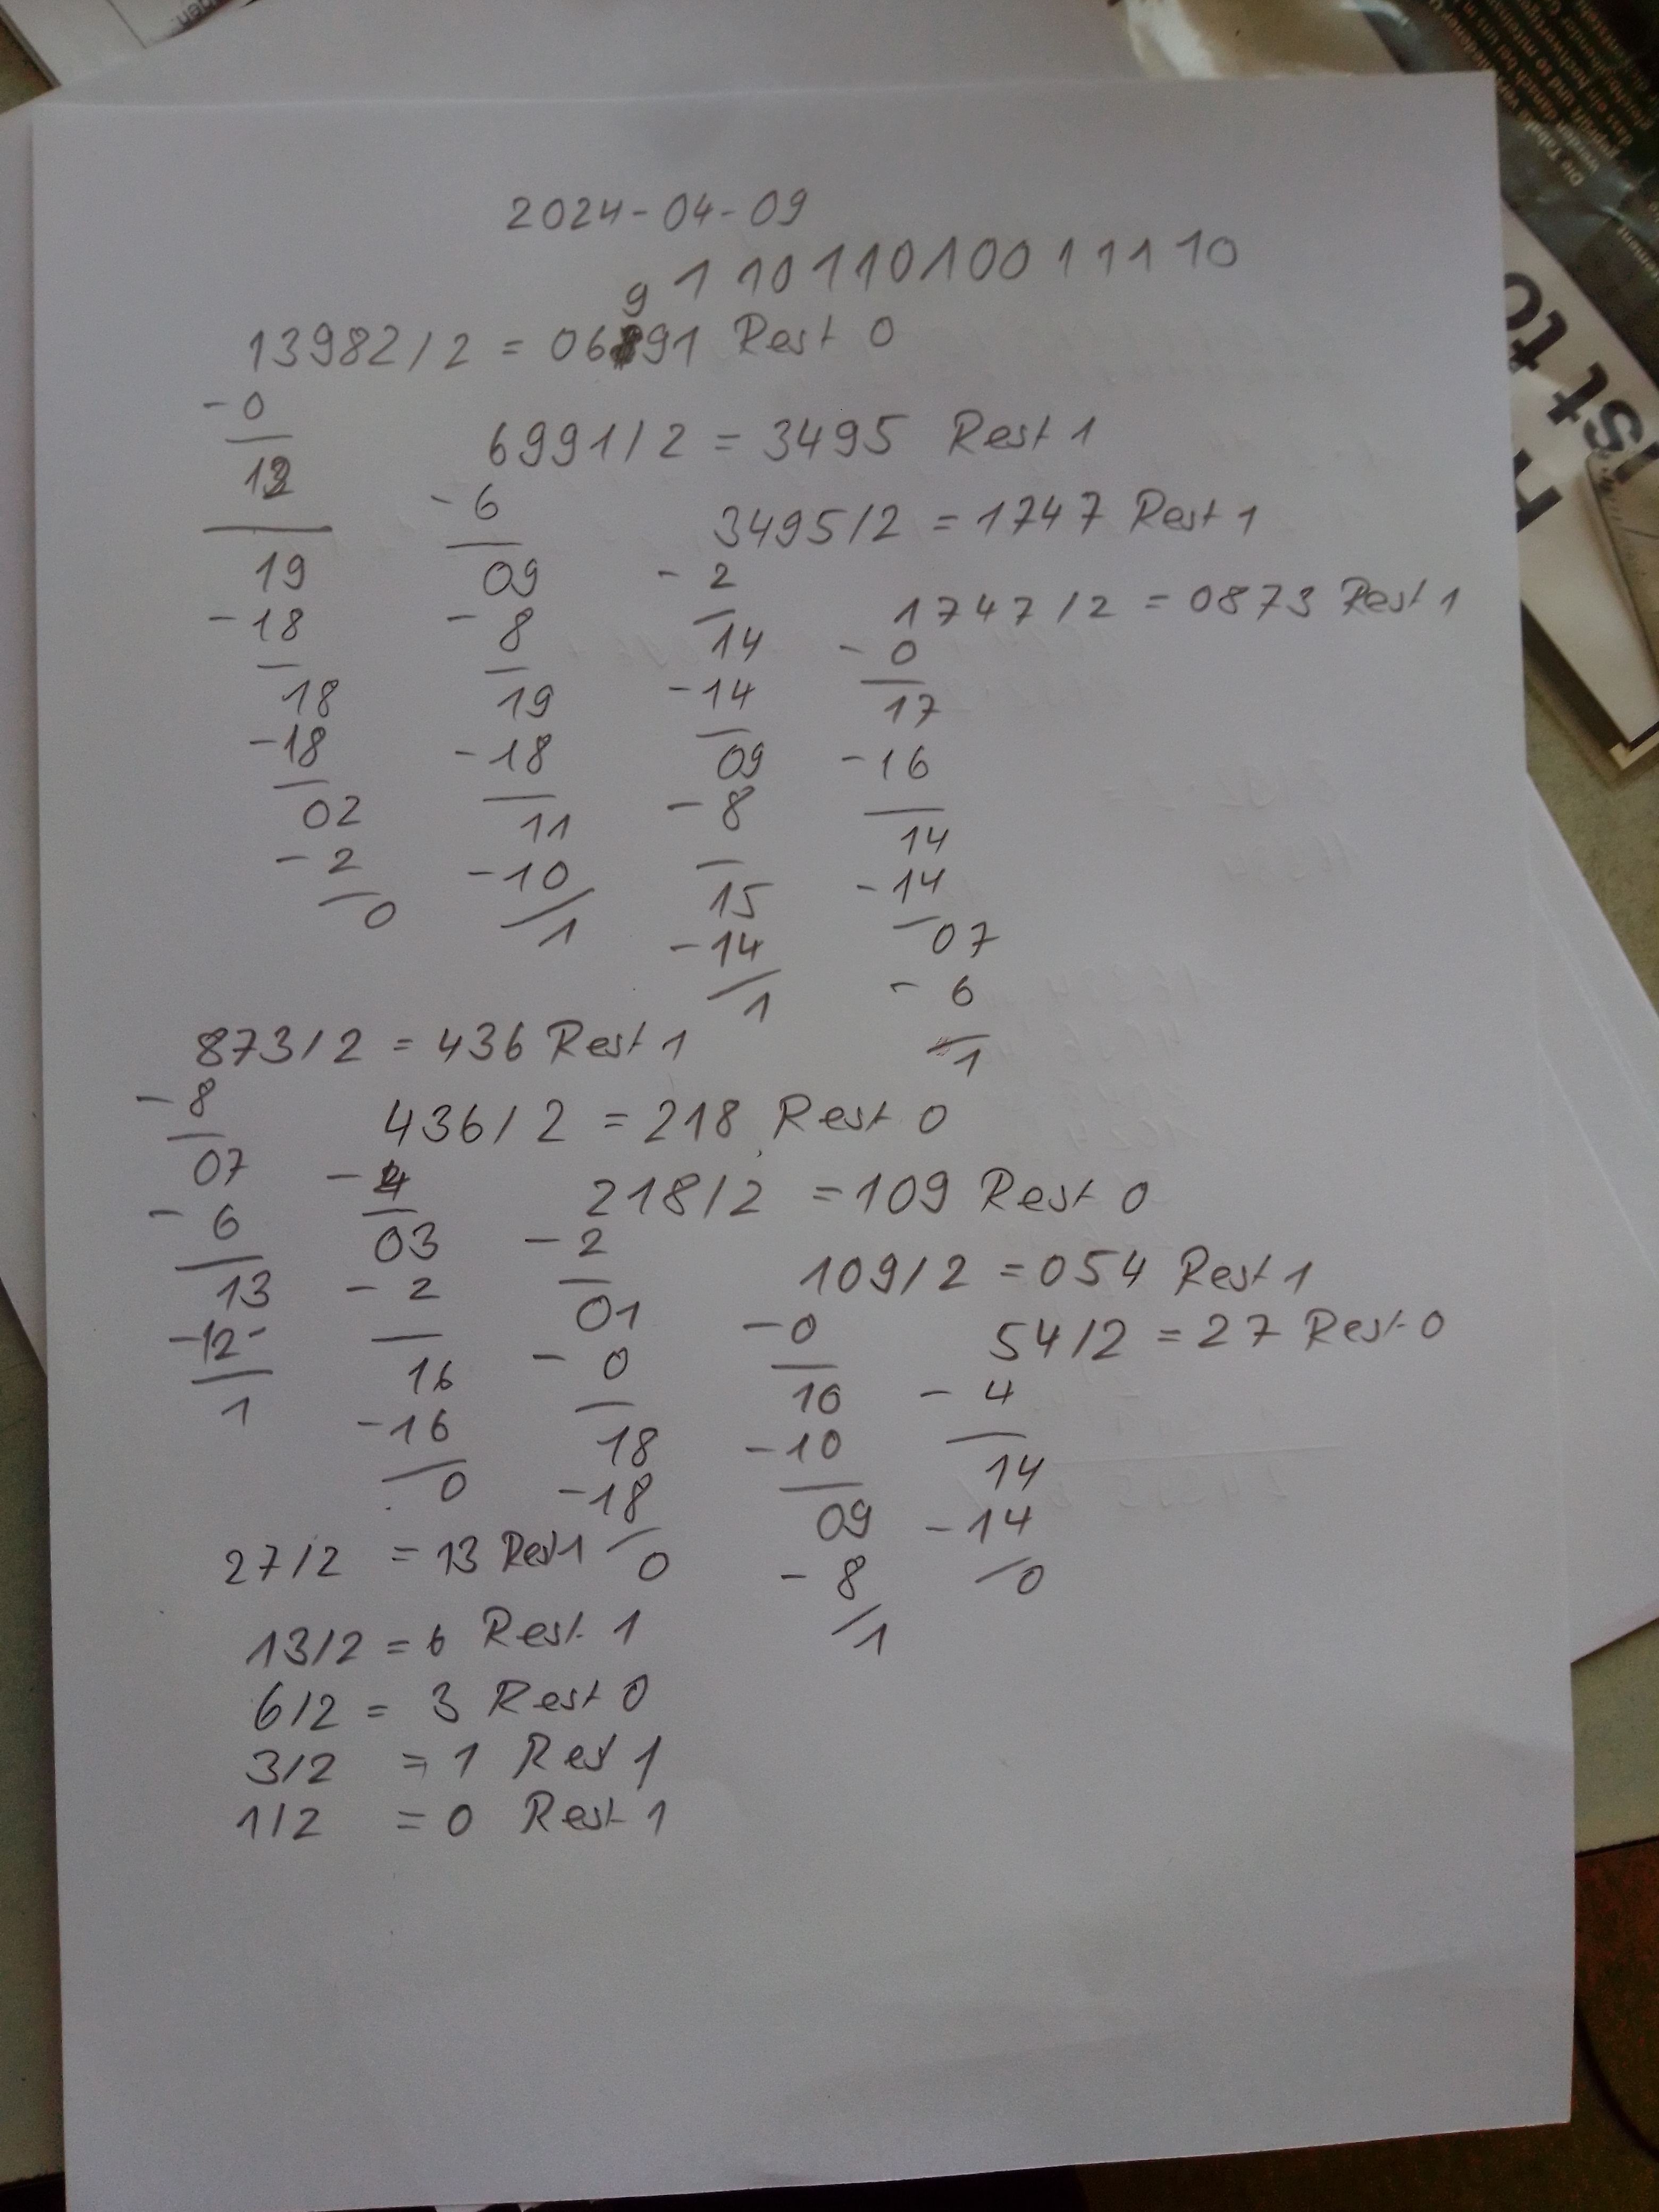 2024-04-09
110110100111110
9
13982/2 = 06991 Rest 0
-0
13
19
-18
18
-18
02
-2
0
6991/2 = 3495 Rest 1
-6
09
-8
19
-18
11
-10
1
3495/2 = 1747 Rest 1
-2
14
-14
09
-8
15
-14
1
1747/2 = 0873 Rest 1
-0
17
-16
14
-14
07
-6
1
873/2 = 436 Rest 1
-8
07
-6
13
-12
1
436/2 = 218 Rest 0
-4
03
-2
16
-16
0
218/2 = 109 Rest 0
-2
01
-0
18
-18
0
109/2 = 054 Rest 1
-0
10
-10
09
-8
1
54/2 = 27 Rest 0
-4
14
-14
0
27/2 = 13 Rest 1
13/2 = 6 Rest 1
6/2 = 3 Rest 0
3/2 = 1 Rest 1
1/2 = 0 Rest 1
st to